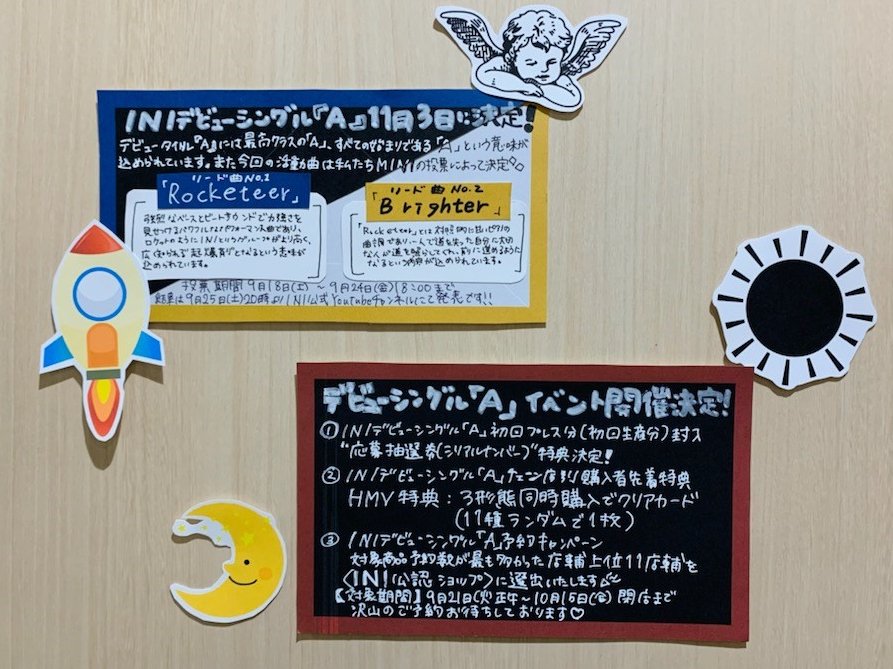 INIデビューシングル「A」11月3日に決定!
デビュータイトル「A」には最高クラスの「A」、すべての始まりである「A」という意味が
込められています。また今回の活動曲は私たちMINIの投票によって決定
リード曲No.1
「Rocketeer」
強烈なベースとビートサウンドで力強さを
見せつけるパワフルなパフォーマンス曲であり、
ロケットのようにINIというグループがより高く、
広く知られる起爆剤となるという意味が
込められています。
リード曲No.2
「Brighter」
「Rocketeer」とは対照的に
曲調であり、一人で道を失った自分に大切
な人が道を照らしてくれ、前に進めるように
なるという内容が込められています。
投票期間 9月18日(土) ~ 9月24日(金)18:00まで
結果は9月25日(土)20時よりINI公式Youtubeチャンネルにて発表です!!
デビューシングル「A」イベント開催決定!
①INIデビューシングル「A」初回プレス分(初回生産分)封入
"応募抽選券(シリアルナンバー)"特典決定!
②INIデビューシングル「A」チェーン店別購入者先着特典
HMV特典:3形態同時購入でクリアカード
(11種ランダムで1枚)
③INIデビューシングル「A」予約キャンペーン
対象商品予約数が最も多かった店舗上位11店舗を
〈INI公認ショップ〉に選出いたします
【対象期間】9月21日(火)正午~10月15日(金)閉店まで
沢山のご予約お待ちしております♡